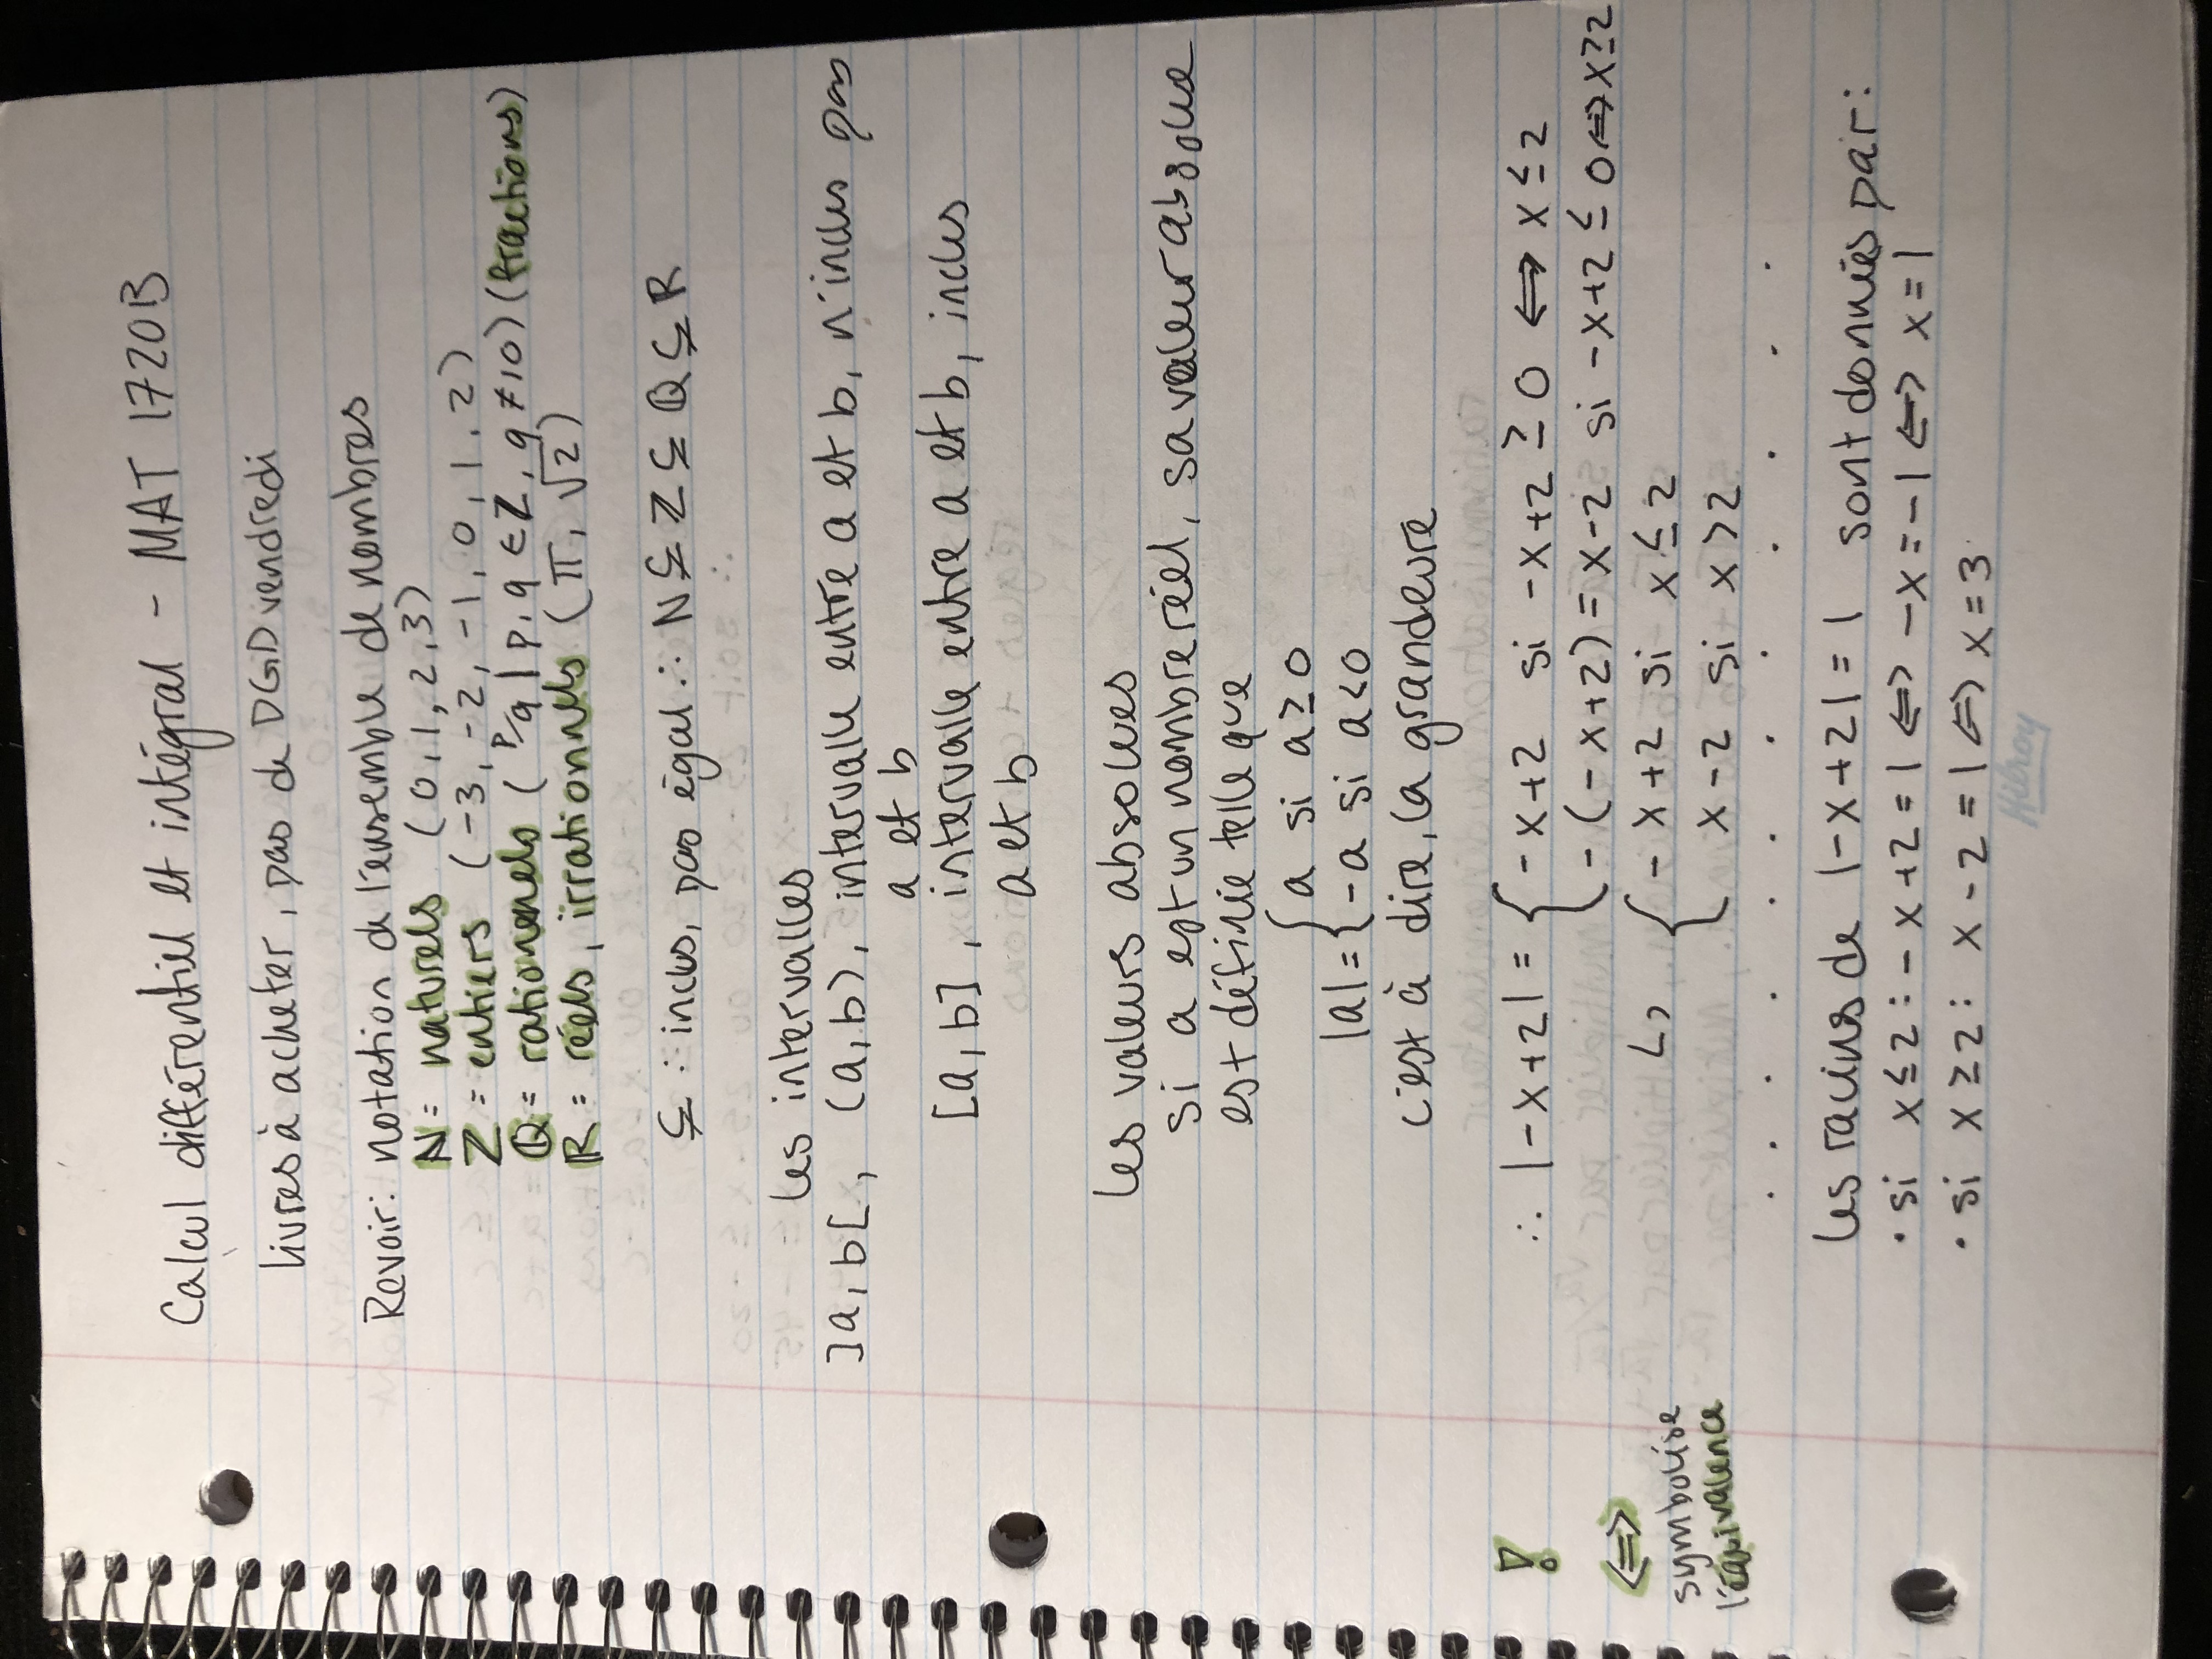 Calcul différentiel et intégral - MAT 1720B
livres à acheter, pas de DGD vendredi
Revoir: notation de l'ensemble de nombres
N = naturels (0,1,2,3)
Z = entiers (-3,-2,-1,0,1,2)
Q = rationenels (P/q | p,q ∈ Z, q ≠ 10) (fractions)
R = réels, irrationnels (π, √2)
⊊ : inclus, pas égal ∴ N ⊊ Z ⊊ Q ⊊ R
les intervalles
]a,b[, (a,b), intervalle entre a et b, n'inclus pas
a et b
[a,b], intervalle entre a et b, inclus
a et b
Les valeurs absolues
si a est un nombre réel, sa valeur absolue
est définie telle que
|a| = { a si a ≥ 0
-a si a < 0
c'est à dire, la grandeure
! ∴ |-x+2| = { -x+2 si -x+2 ≥ 0 ⟺ x ≤ 2
-(-x+2) = x-2 si -x+2 ≤ 0 ⟺ x ≥ 2
⟺ symbolise l'équivalence
↳ { -x+2 si x ≤ 2
x-2 si x > 2
. . . . . . . . . .
les racines de |-x+2| = 1 sont donnés par:
• si x ≤ 2 : -x+2 = 1 ⟺ -x = -1 ⟺ x = 1
• si x ≥ 2 : x-2 = 1 ⟺ x = 3
Hilroy